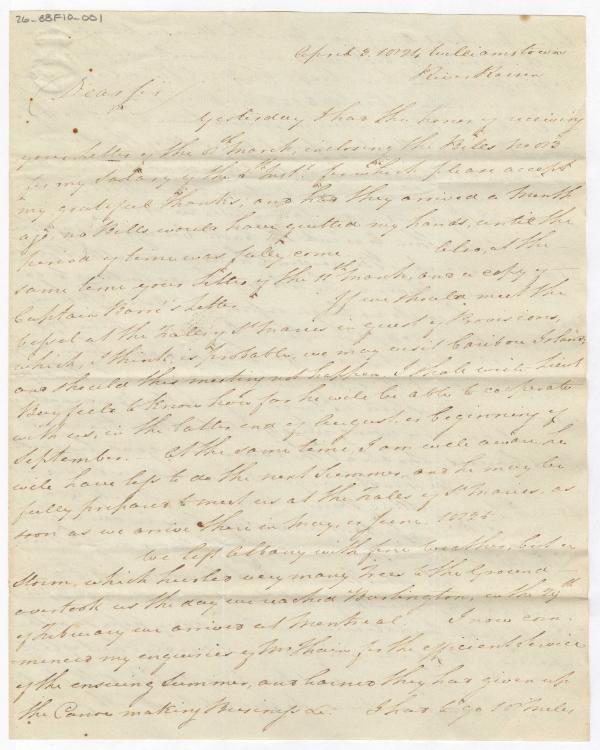 26-88F10-001
April 3. 1824 Williamstown
River Raisin
Dear Sir
Yesterday I had the honor of receiving
your Letter of the 8th March, inclosing the Bills
for my Salary of the for which please accept
my grateful Thanks; and had they arrived a Month
ago no Bills would have quitted my hands, until the
period of time was fully come. Also, at the
same time your Letter of the 11th March, and a copy of
Captain Letter. If we should meet the
Vessel at the Falls of St Maries in quest of Provisions,
which, I think, is probable, we may visit Caribou Island,
and should this meeting not happen, I shall write Lieut
Bayfield to know how far he will be able to cooperate
with us, in the latter end of August, or beginning of
September. At the same time, I am well aware, he
will have less to do the next Summer, and he may be
fully prepared to meet us at the Falls of St Maries, as
soon as we arrive there in May, or June. 1825
We left Albany with fine Weather, but a
Storm, which hurled very many Trees to the Ground
overtook us the day we reached Burlington, on the 29th
of February we arrived at Montreal. I now com-
menced my enquiries of Mr Thain for the efficient Service
of the ensuing Summer, and learned they had given up
the Canoe making Business &c. I had to go 80 Miles